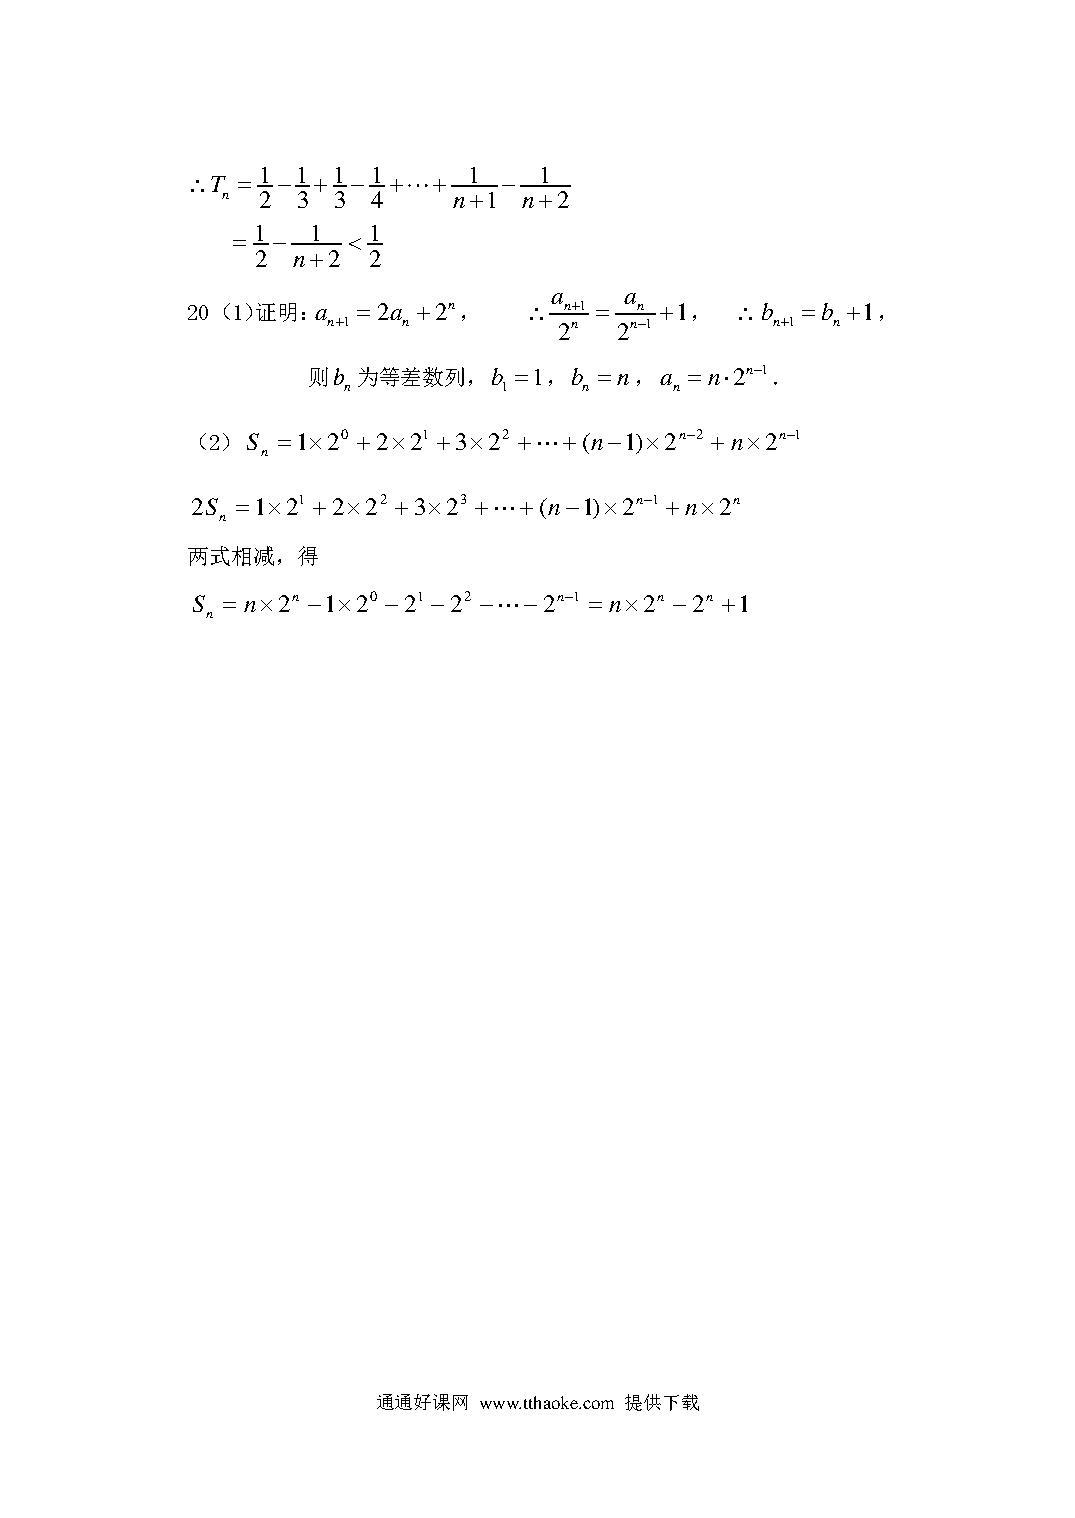 ∴T_n = 1/2 − 1/3 + 1/3 − 1/4 + ⋯ + 1/(n+1) − 1/(n+2)
= 1/2 − 1/(n+2) < 1/2
20（1)证明：a_{n+1} = 2a_n + 2^n， ∴ a_{n+1}/2^n = a_n/2^{n−1} + 1， ∴ b_{n+1} = b_n + 1，
则b_n 为等差数列，b_1 = 1，b_n = n，a_n = n·2^{n−1}．
（2） S_n = 1×2^0 + 2×2^1 + 3×2^2 + ⋯ + (n−1)×2^{n−2} + n×2^{n−1}
2S_n = 1×2^1 + 2×2^2 + 3×2^3 + ⋯ + (n−1)×2^{n−1} + n×2^n
两式相减，得
S_n = n×2^n − 1×2^0 − 2^1 − 2^2 − ⋯ − 2^{n−1} = n×2^n − 2^n + 1
通通好课网 www.tthaoke.com 提供下载